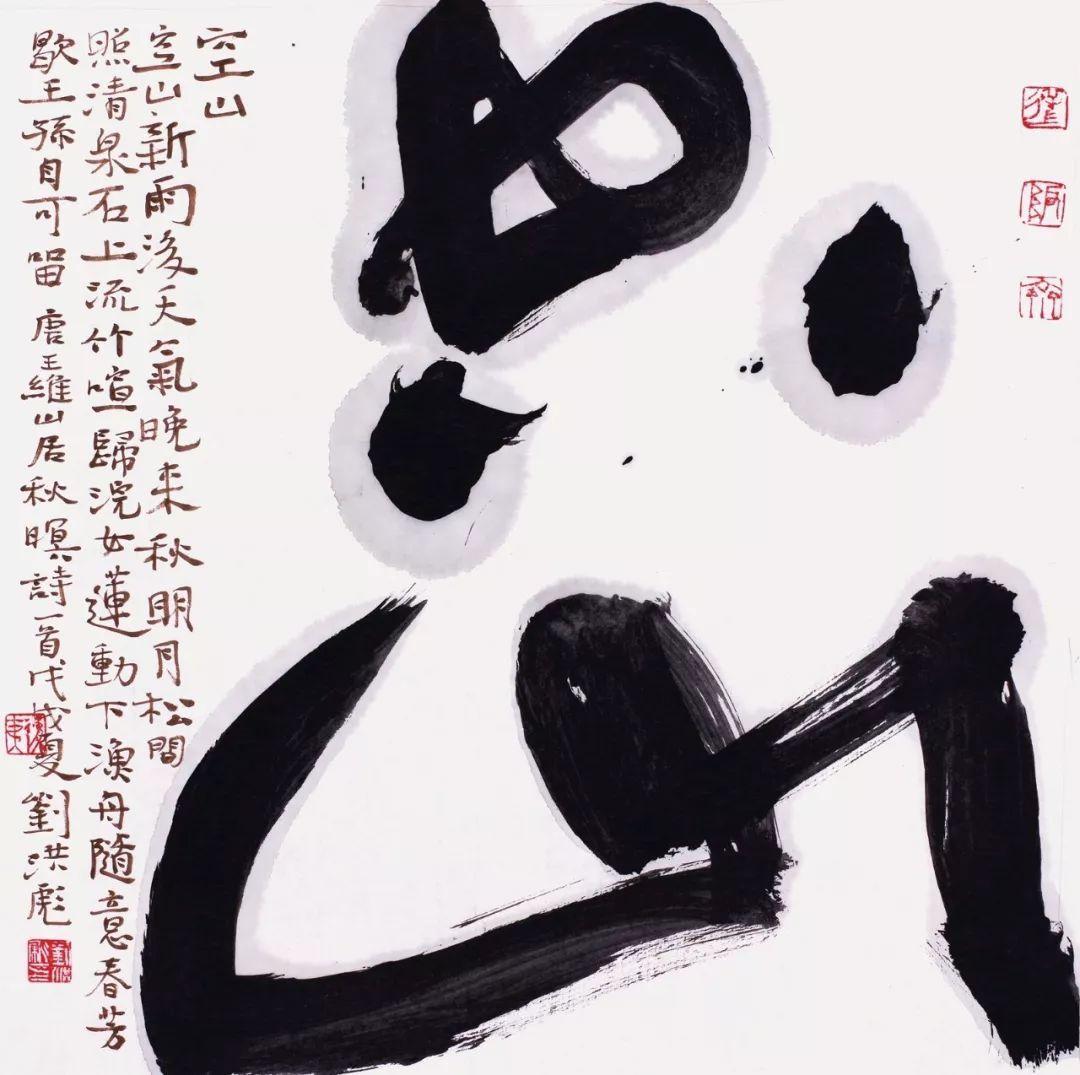 空山
空山
空山新雨後天氣晚来秋明月松間
照清泉石上流竹喧歸浣女蓮動下漁舟隨意春芳
歇王孫自可留 唐王維山居秋暝詩一首戊戌夏 劉洪彪